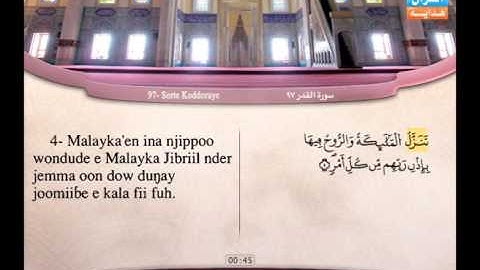 القرآن
هداية
97- Sorte Kodđoraye
سورة القدر ٩٧
4- Malayka'en ina njippoo
wondude e Malayka Jibriil nder
jemma oon dow duŋay
joomiiɓe e kala fii fuh.
تَنَزَّلُ الْمَلَٰٓئِكَةُ وَالرُّوحُ فِيهَا
بِإِذْنِ رَبِّهِم مِّن كُلِّ أَمْرٍ ۝٤
00:45